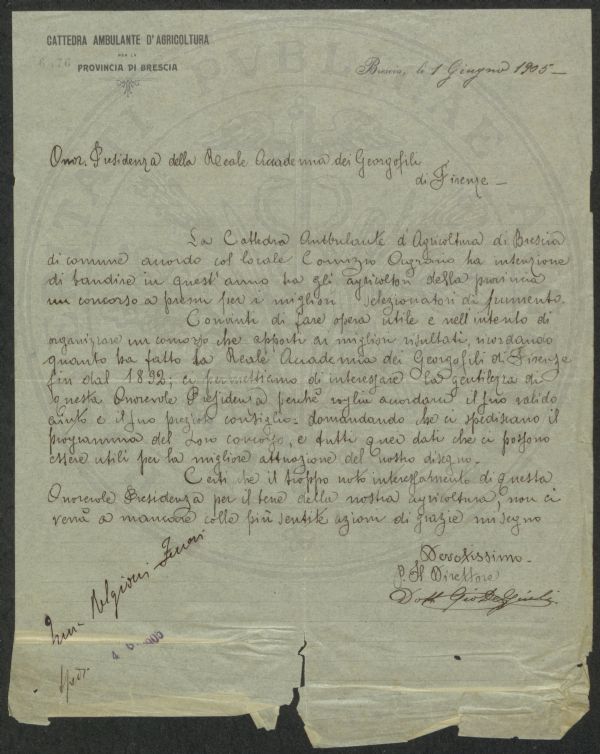 CATTEDRA AMBULANTE D'AGRICOLTURA
PER LA
PROVINCIA DI BRESCIA
Brescia, lì 1 Giugno 1905 —
Onor. Presidenza della Reale Accademia dei Georgofili
di Firenze —
La Cattedra Ambulante d'Agricoltura di Brescia
di comune accordo col locale Comizio Agrario ha intenzione
di bandire in quest'anno tra gli agricoltori della provincia
un concorso a premi per i migliori selezionatori di frumento.
Convinti di fare opera utile e nell'intento di
organizzare un concorso che apporti ai migliori risultati, ricordando
quanto ha fatto la Reale Accademia dei Georgofili di Firenze
fin dal 1892; ci permettiamo di interessare la gentilezza di
questa Onorevole Presidenza perchè voglia accordarci il suo valido
aiuto e il suo prezioso consiglio - domandando che ci spediscano il
programma del Loro concorso, e tutti quei dati che ci possono
essere utili per la migliore attuazione del nostro disegno -
Certi che il troppo noto interessamento di questa
Onorevole Presidenza per il bene della nostra agricoltura, non ci
verrà a mancare colle più sentite azioni di grazie mi segno
Devotissimo -
P. Il Direttore
Dott. Gio